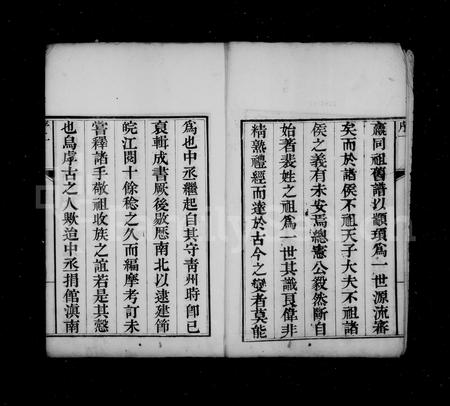 序
嬴同祖舊譜以顓頊爲一世源流審
矣而於諸侯不祖天子大夫不祖諸
侯之義有未安焉總憲公毅然斷自
始者裴姓之祖爲一世其識良偉非
精熟禮經而達於古今之變者莫能
爲也中丞繼起自其守青州時卽已
裒輯成書厥後敭歷南北以逮建節
皖江閱十餘稔之久而編摩考訂未
嘗釋諸手敬祖收族之誼若是其慤
也烏虖古之人歟迨中丞捐館滇南
FamilySearch